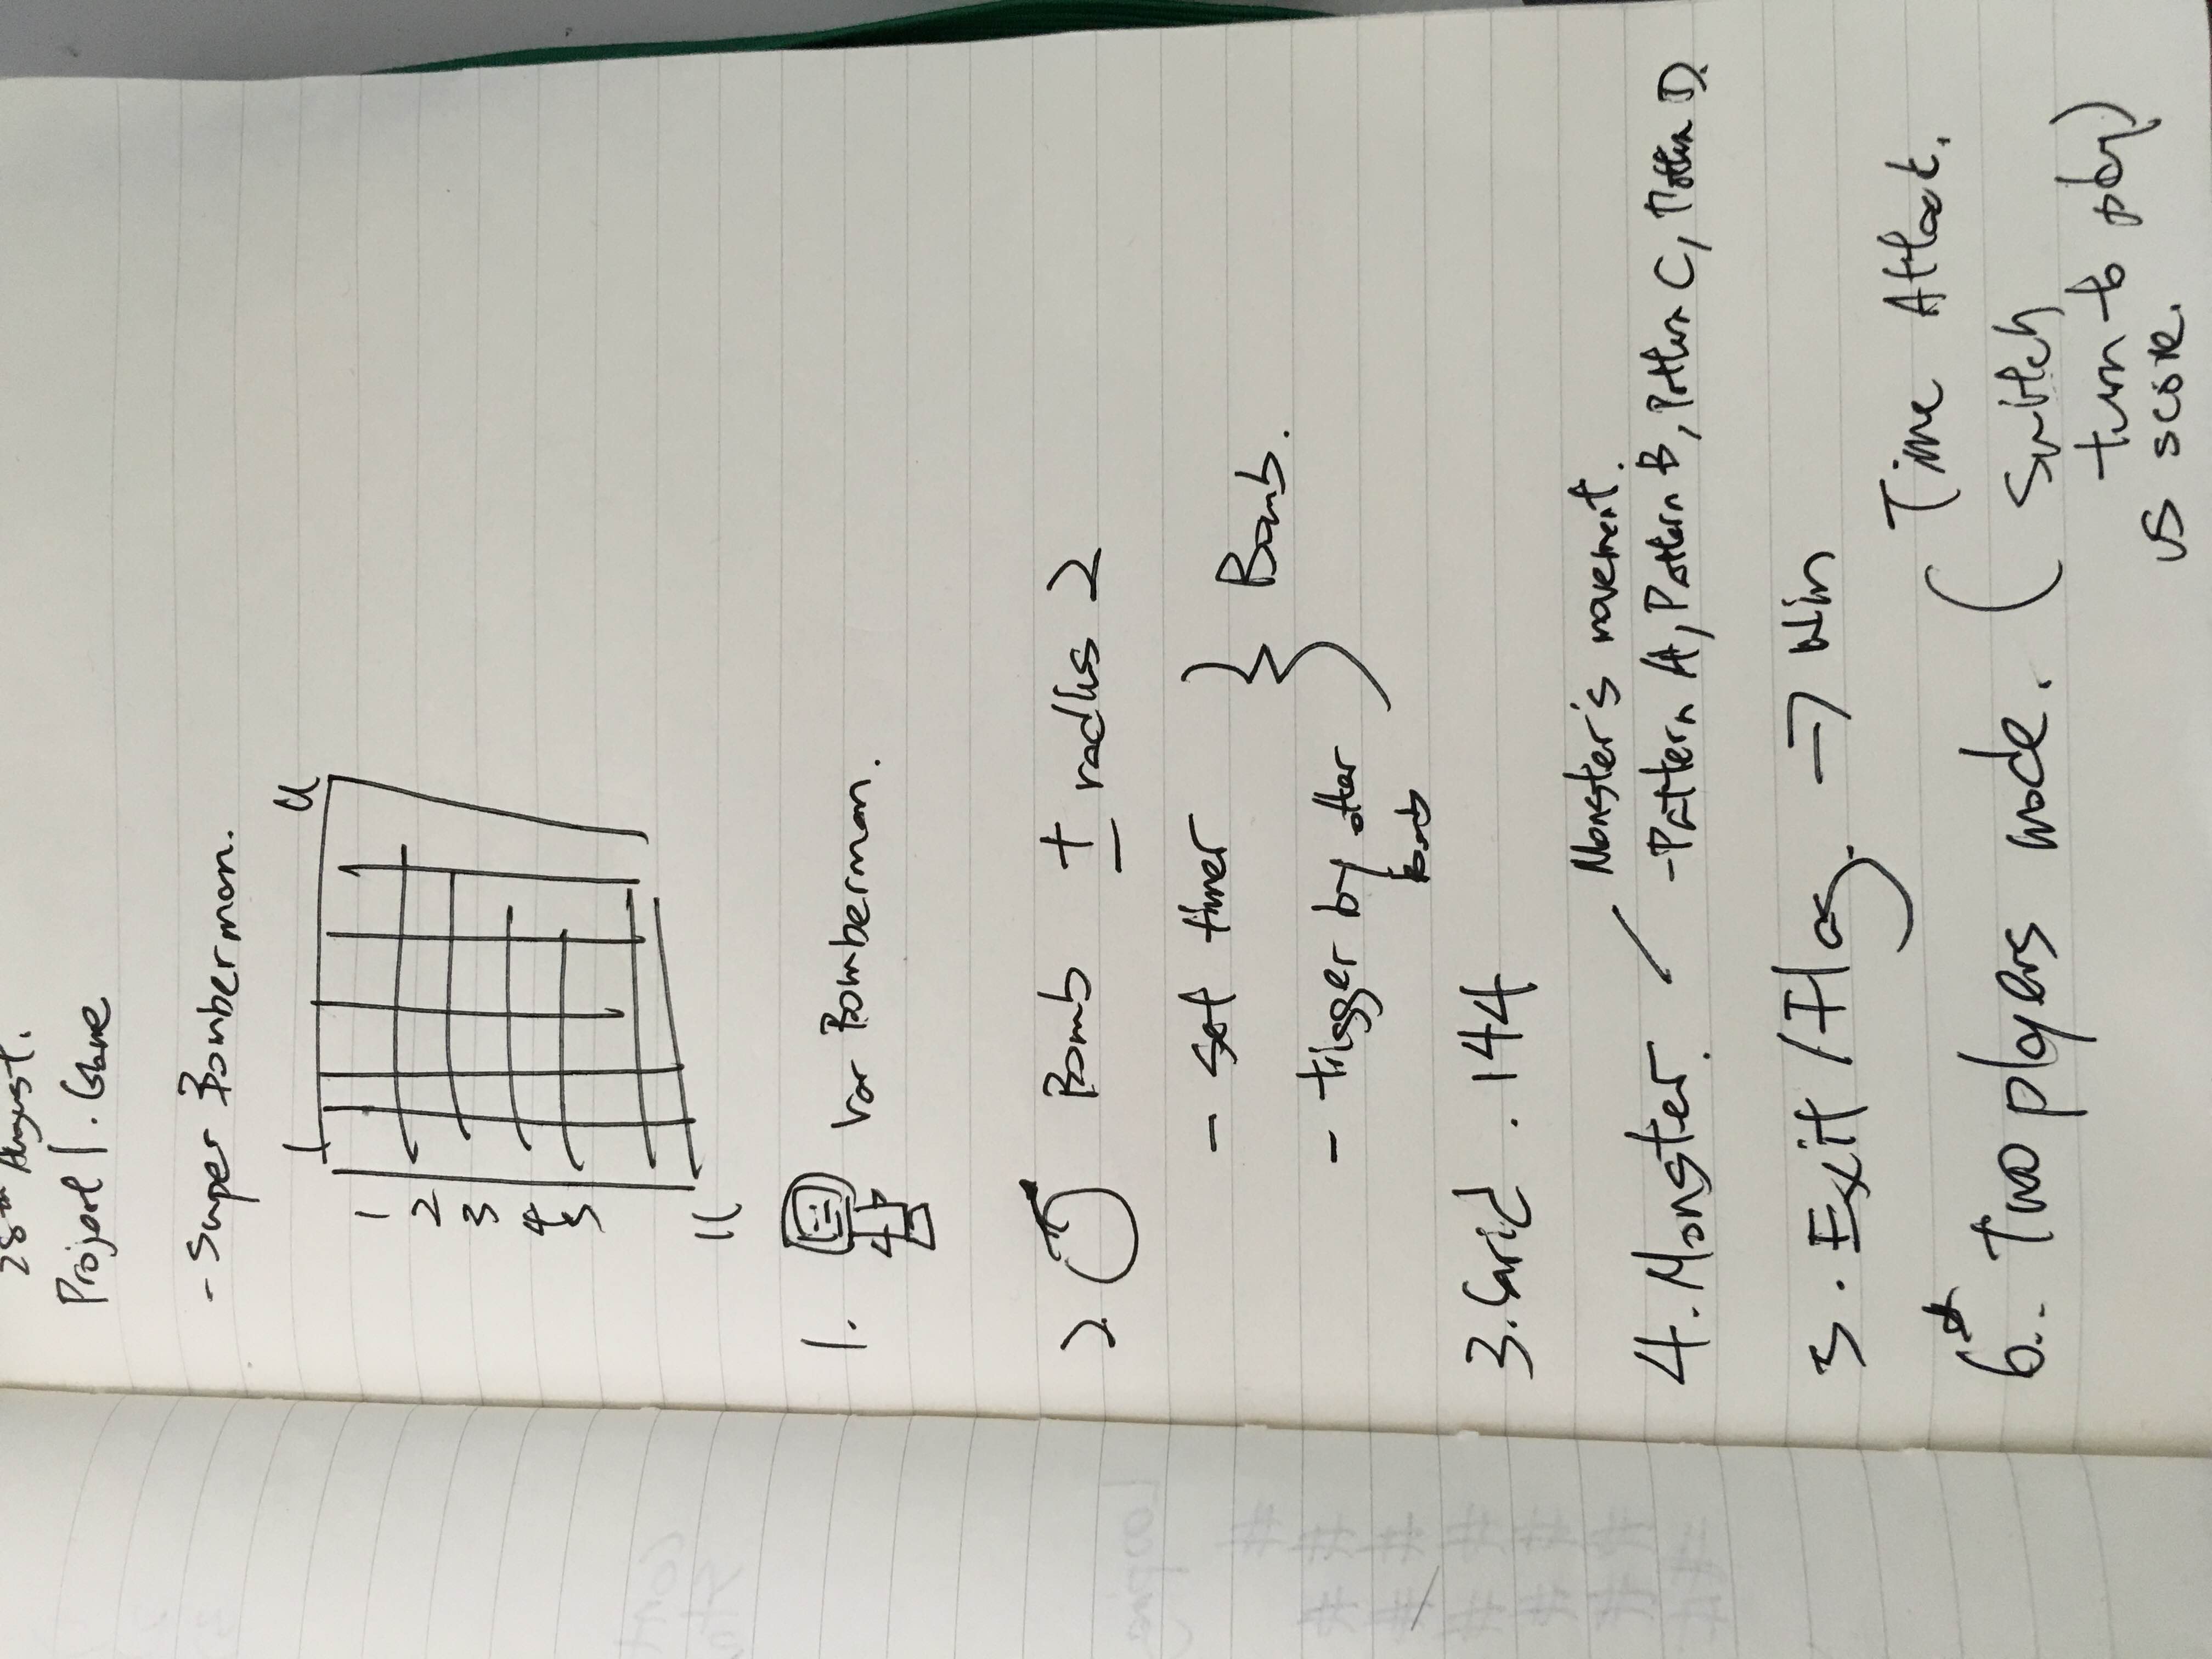 28th August.
Project 1. Game
- Super Bomberman.
1 11
1
2
3
4
5
11
1. Var Bomberman.
2 Bomb ± radius 2
- set timer
- trigger by other
bomb
} Bomb.
3. Grid . 144
4. Monster.
Monster's movement.
- Pattern A, Pattern B, Pattern C, Pattern D.
5. Exit / Flag. -> Win
6.* Two players mode. ( Time Attack.
Switch
turn to play)
VS score.